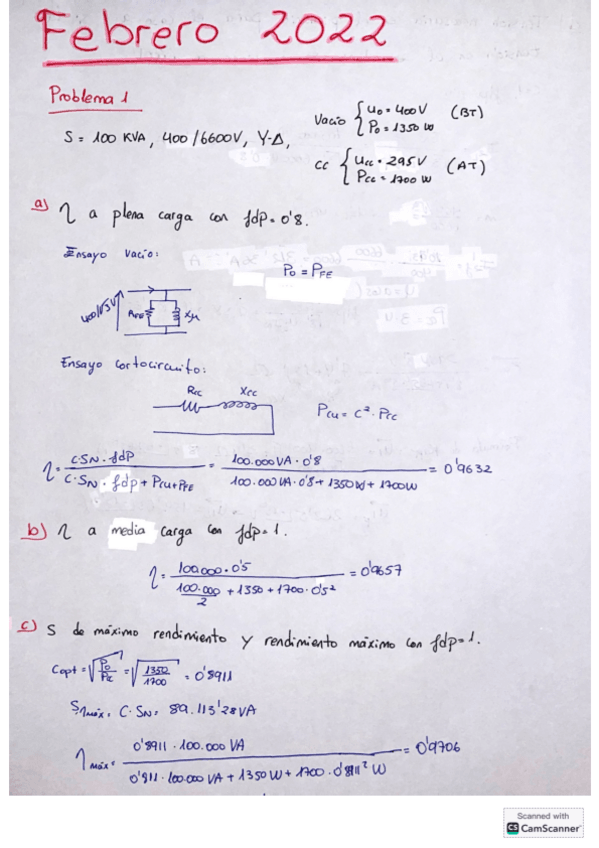 Febrero 2022
Problema 1
S = 100 KVA, 400/6600V, Y-Δ,
Vacio { U0 = 400V (BT)
P0 = 1350 W
CC { Ucc = 295V (AT)
Pcc = 1700 W
a) η a plena carga con fdp = 0'8.
Ensayo vacio:
P0 = PFE
400/√3 V
RFE Xμ
Ensayo cortocircuito:
Rcc Xcc
PCU = C² · Pcc
η = C·SN·fdp / C·SN·fdp + PCU + PFE = 100.000VA·0'8 / 100.000VA·0'8 + 1350W + 1700W = 0'9632
b) η a media carga con fdp = 1.
η = 100.000·0'5 / 100.000/2 + 1350 + 1700·0'5² = 0'9657
c) S de máximo rendimiento y rendimiento máximo con fdp = 1.
Copt = √P0/Pcc = √1350/1700 = 0'8911
Sηmáx = C·SN = 89.113'28VA
ηmáx = 0'8911·100.000 VA / 0'8911·100.000 VA + 1350W + 1700·0'8911² W = 0'9706
Scanned with
CS CamScanner